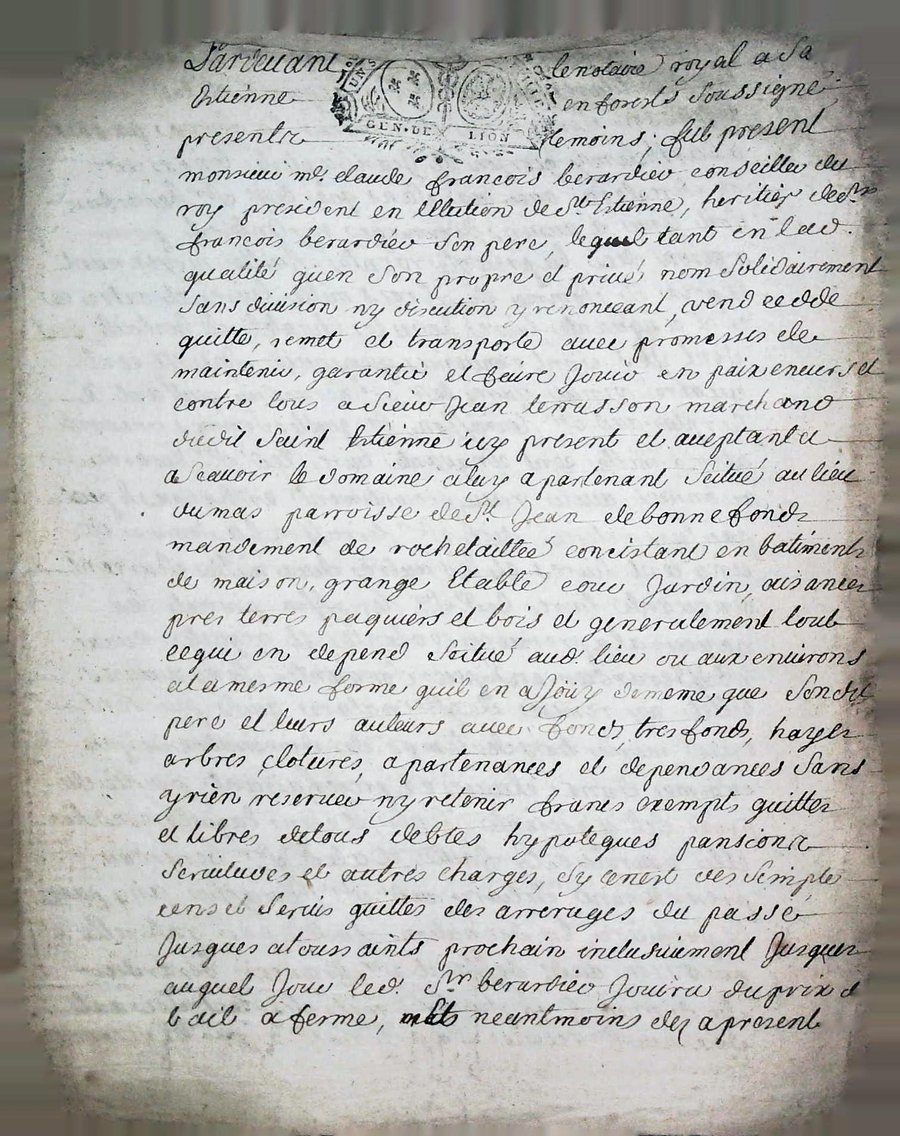 Pardevant le notaire royal a St
Estienne en forest soussigné
presents temoins, fut present
monsieur me. claude francois berardier conseiller du
roy president en lElection de St. Estienne, heritier de sr.
francois berardier son pere, lequel tant en lad.
qualité quen son propre et privé nom solidairement
sans division ny discution y renonceant, vend cedde
quitte, remet et transporte avec promesses de
maintenir, garantir et faire Jouir en paix envers et
contre tous a Sieur Jean terrasson marchand
dudit Saint Estienne icy present et aceptant
a Scavoir le domaine a luy apartenant Scitué au lieu
du mas parroisse de St. Jean de bonnefonds
mandement de rochetaillee concistant en batiments
de maison, grange Etable cour Jardin, aisances
pres terres paquiers et bois et generalement tout
cequi en depend Scitué aud. lieu ou aux environs
a la mesme forme quil en a Jouy de meme que Sondit
pere et leurs auteurs avec fonds, tresfonds, hayes
arbres clotures, apartenances et dependances Sans
y rien reserver ny retenir francs exempts quittes
et libres de tous debtes hypoteques pansions
Servitudes et autres charges, Sy cenest des Simple
cens et Servis quittes des arrerages du passé
Jusques a toussaints prochain inclusivement Jusques
auquel Jour led. Sr. berardier Jouira du prix d
bail a ferme, neantmoins des a present
UN
GEN. DE LION